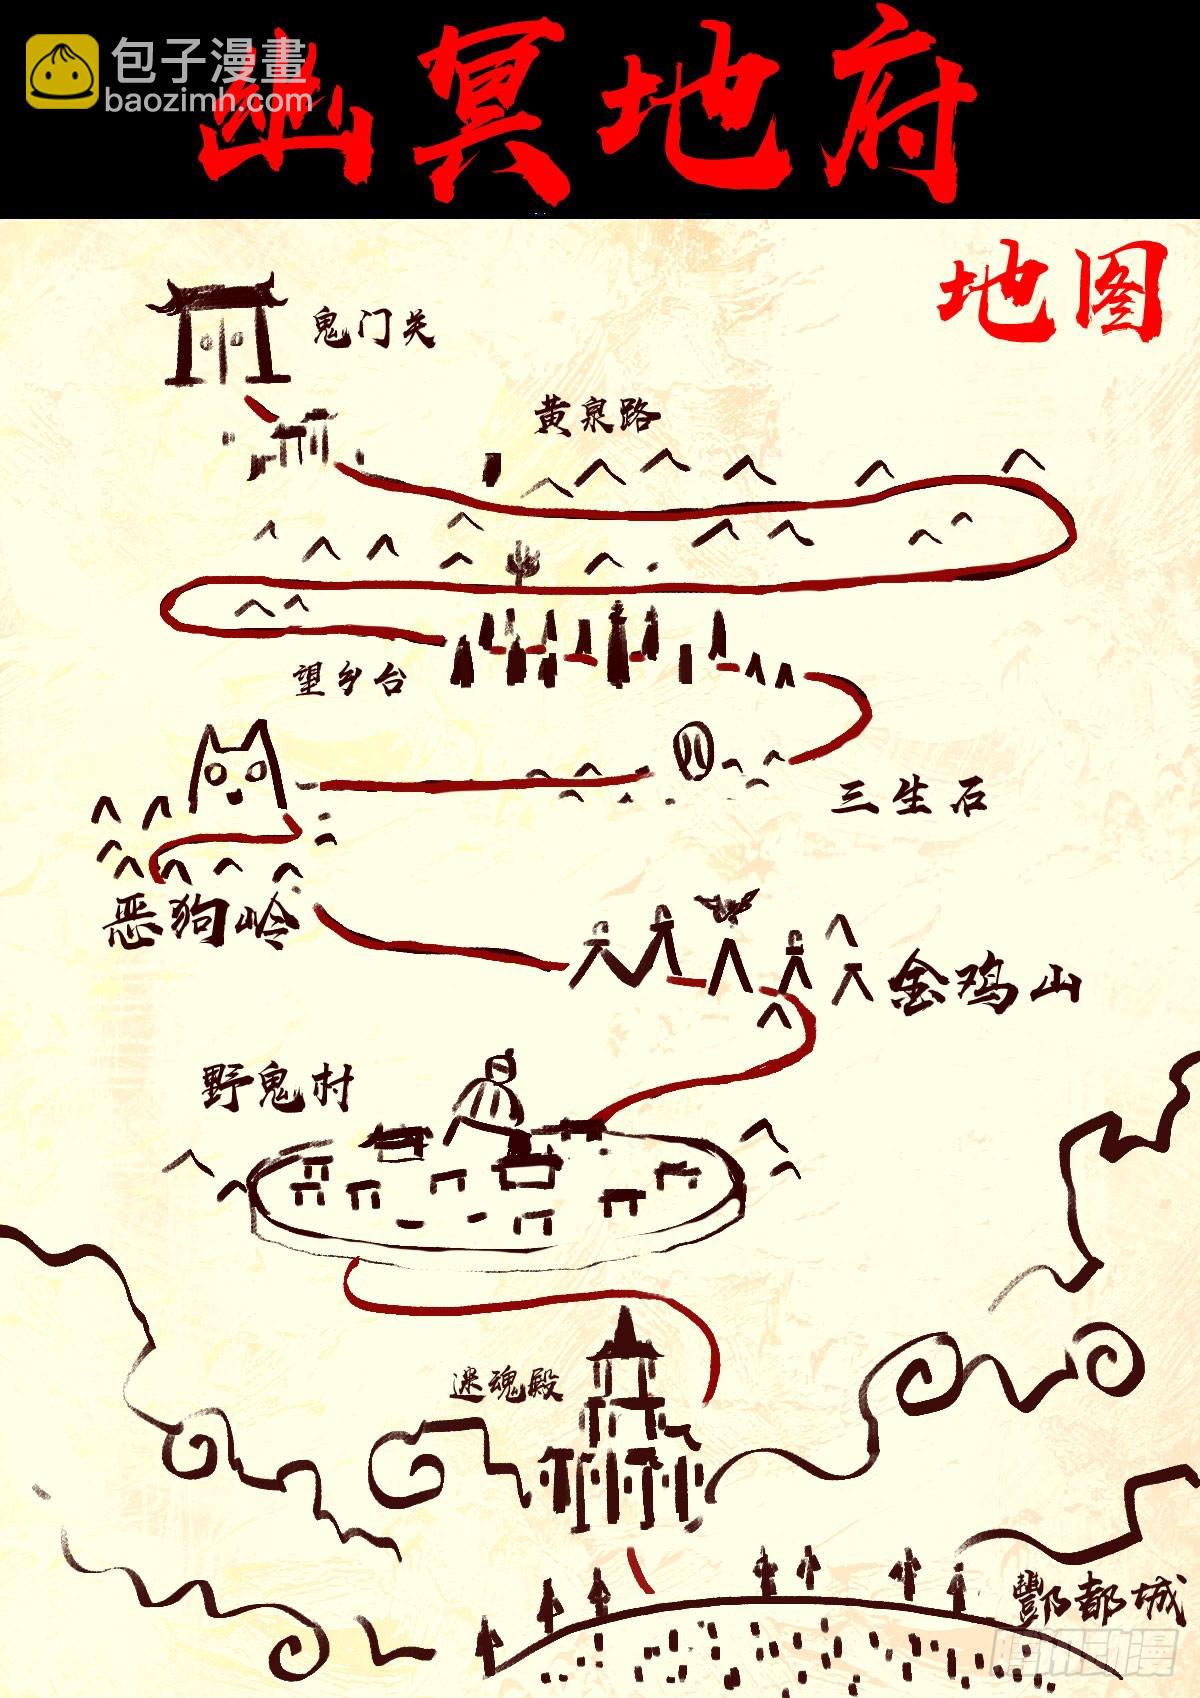 包子漫畫
baozimh.com
幽冥地府
地图
鬼门关
黄泉路
望乡台
三生石
恶狗岭
金鸡山
野鬼村
迷魂殿
酆都城
腾讯动漫